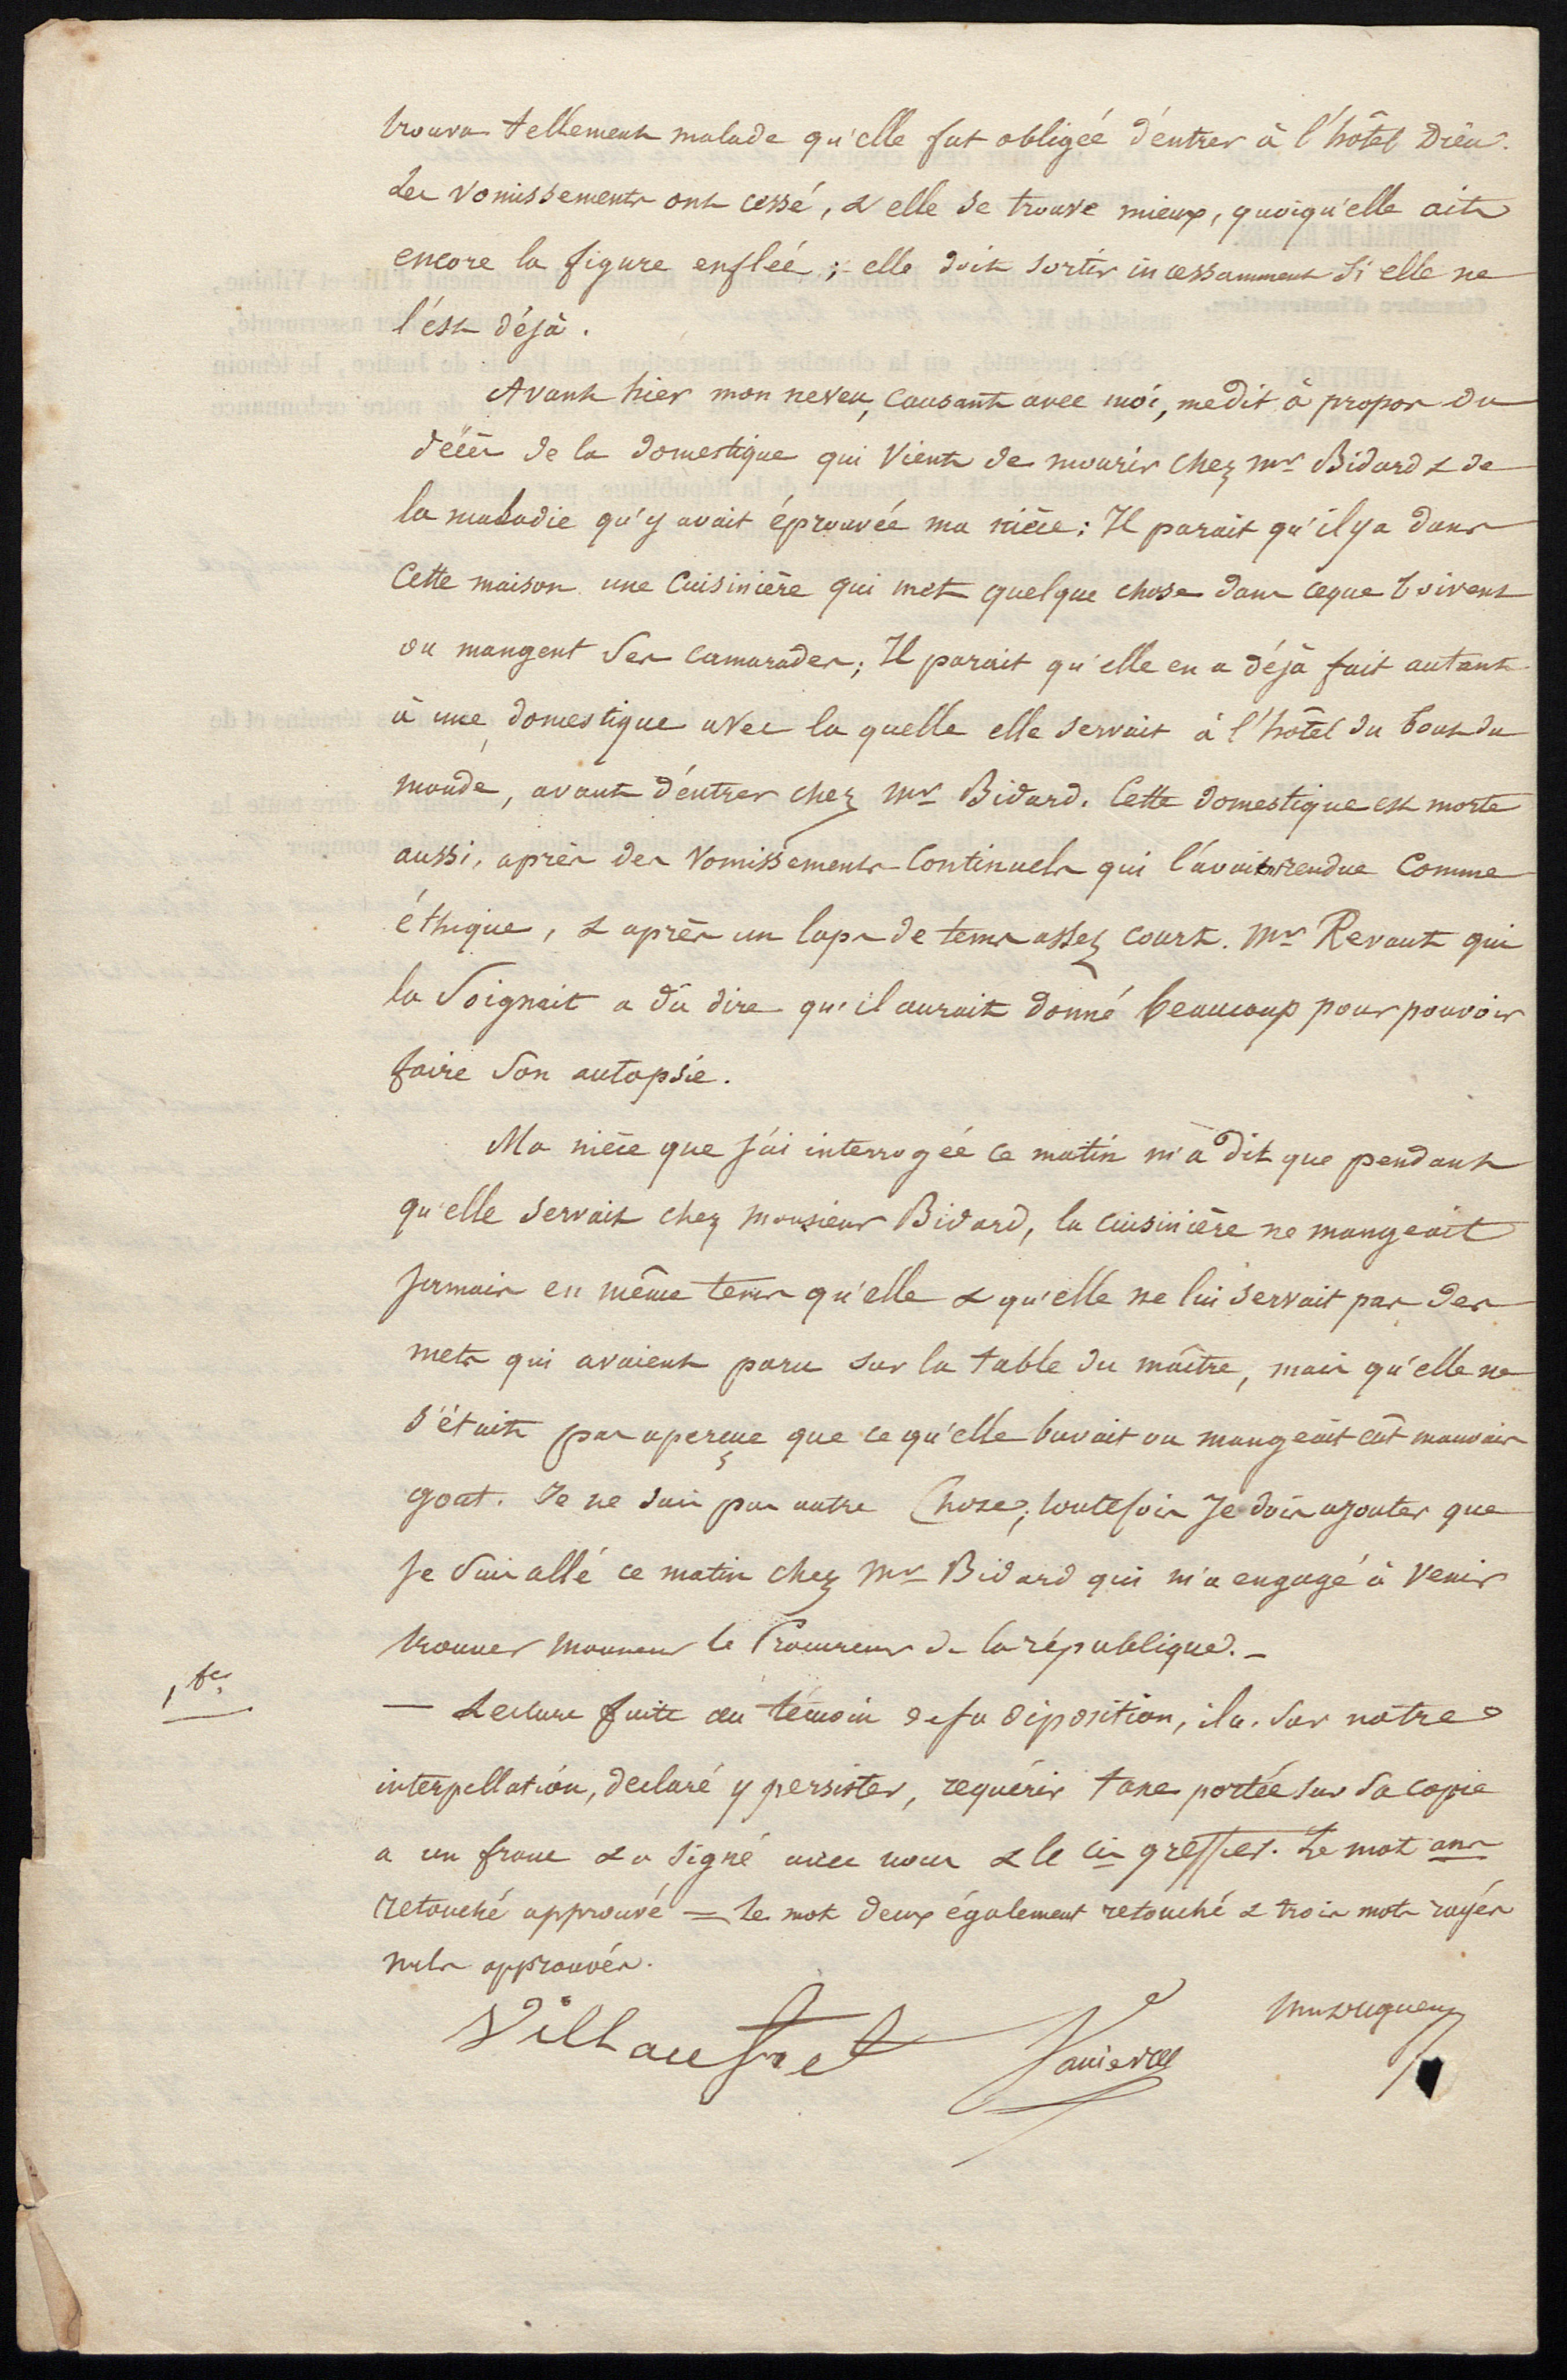 trouva tellement malade qu'elle fut obligée d'entrer à l'hôtel Dieu.
Les vomissements ont cessé, & elle se trouve mieux, quoiqu'elle ait
encore la figure enflée ; elle doit sortir incessamment si elle ne
l'est déjà.
Avant hier mon neveu, causant avec moi, me dit à propos du
décès de la domestique qui vient de mourir chez Mr Bidard & de
la maladie qu'y avait éprouvée ma nièce : Il parait qu'il y a dans
Cette maison une Cuisinière qui met quelque chose dans ce que boivent
ou mangent ses camarades ; Il parait qu'elle en a déjà fait autant
à une domestique avec la quelle elle servait à l'hôtel du bout du
monde, avant d'entrer chez Mr Bidard. Cette domestique est morte
aussi, après des vomissements continuels qui l'avaient rendue comme
éthique, & après un laps de tems assez court. Mr Revault qui
la soignait a dû dire qu'il aurait donné beaucoup pour pouvoir
faire son autopsie.
Ma nièce que j'ai interrogée ce matin m'a dit que pendant
qu'elle servait chez Monsieur Bidard, la cuisinière ne mangeait
jamais en même tems qu'elle & qu'elle ne lui servait pas des
mets qui avaient paru sur la table du maître, mais qu'elle ne
s'était pas aperçue que ce qu'elle buvait ou mangeait eût mauvais
goût. Je ne sais pas autre Chose ; toutefois Je dois ajouter que
je suis allé ce matin chez Mr Bidard qui m'a engagé à venir
trouver Monsieur le Procureur de la république. -
— Lecture faite au témoin de sa déposition, il a, sur notre
interpellation, déclaré y persister, requérir taxe portée sur sa copie
a un franc & a signé avec nous & le cis greffier. Le mot ans
retouché approuvé = le mot deux également retouché & trois mots rayés
nuls approuvés.
1 fc.